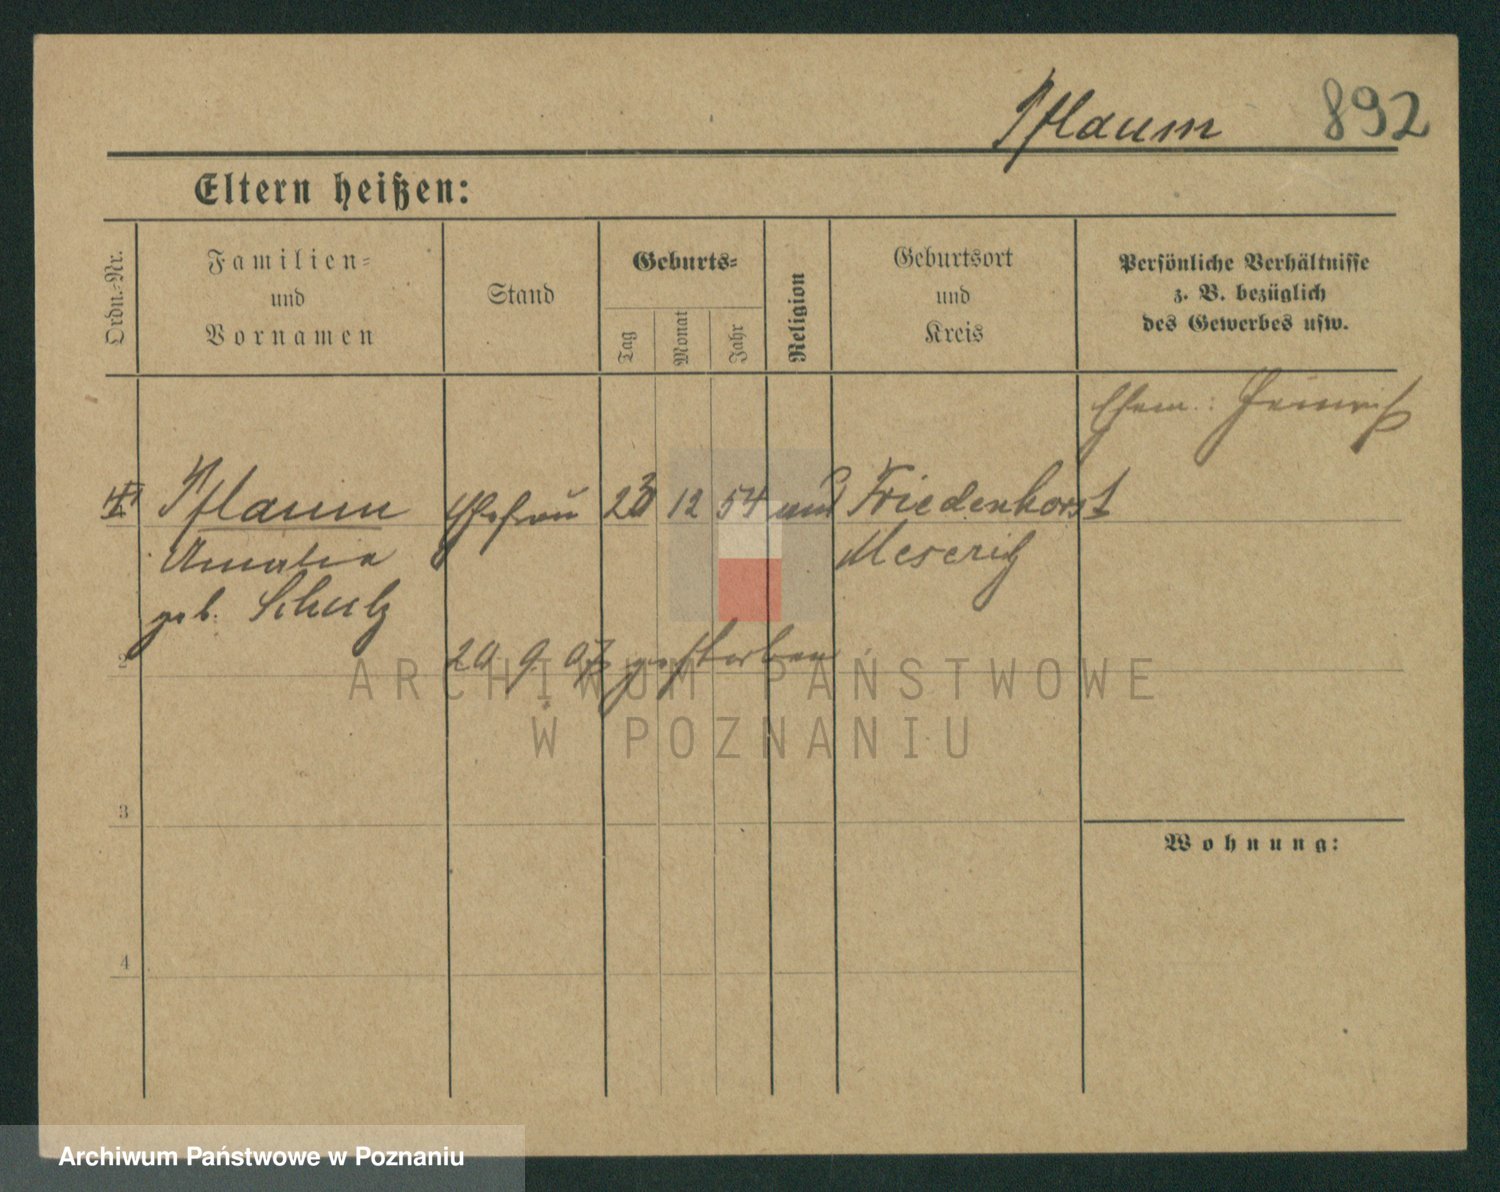 Pflaum 892
Eltern heißen:
Ordn.-Nr.
Familien-
und
Vornamen
Stand
Geburts-
Tag
Monat
Jahr
Religion
Geburtsort
und
Kreis
Persönliche Verhältnisse
z. B. bezüglich
des Gewerbes usw.
Ehem.: Heinrich
Pflaum Ehefrau 23 12 54 Friedenhorst
Amalie Meseritz
geb. Schulz
2
20. 9. 07 gestorben
3
Wohnung:
4
ARCHIWUM PAŃSTWOWE
W POZNANIU
Archiwum Państwowe w Poznaniu